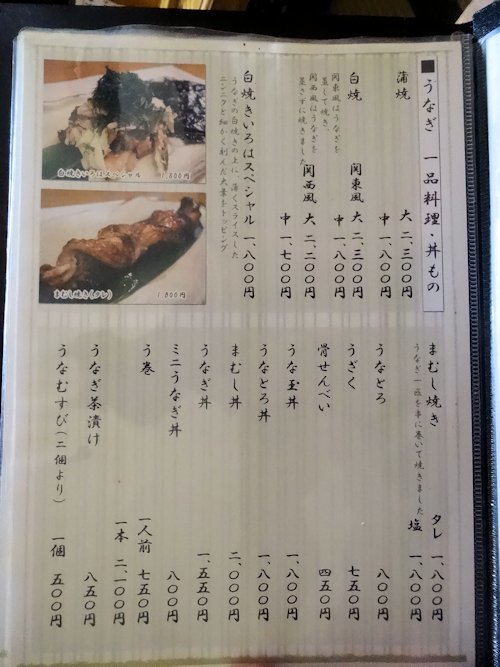 ■うなぎ 一品料理・丼もの
蒲焼 大 二、三〇〇円
中 一、八〇〇円
白焼 関東風 大 二、三〇〇円
関東風はうなぎを
蒸して焼き、
中 一、八〇〇円
関西風はうなぎを
蒸さずに焼きました
関西風 大 二、二〇〇円
中 一、七〇〇円
白焼きいろはスペシャル 一、八〇〇円
うなぎの白焼きの上に、薄くスライスした
ニンニクと細かく刻んだ大葉をトッピング
白焼きいろはスペシャル 1,800円
まむし焼き(タレ) 1,800円
まむし焼き タレ 一、八〇〇円
うなぎ一匹を串に巻いて焼きました
塩 一、八〇〇円
うなとろ 八〇〇円
うざく 七五〇円
骨せんべい 四五〇円
うな玉丼 一、八〇〇円
うなとろ丼 一、八〇〇円
まむし丼 二、〇〇〇円
うなぎ丼 一、五五〇円
ミニうなぎ丼 八〇〇円
う巻 一人前 七五〇円
一本 二、一〇〇円
うなぎ茶漬け 八五〇円
うなむすび(二個より) 一個 五〇〇円